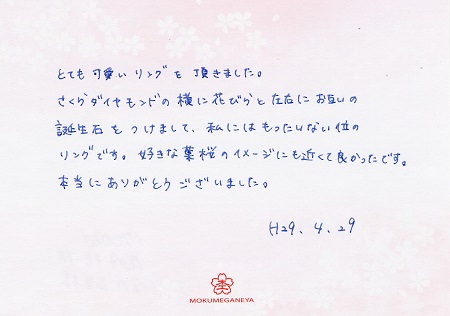 とても可愛いリングを頂きました。
さくらダイヤモンドの横に花びらと左右にお互いの
誕生石をつけまして、私にはもったいない位の
リングです。好きな葉桜のイメージにも近くて良かったです。
本当にありがとうございました。
H29. 4. 29
MOKUMEGANEYA